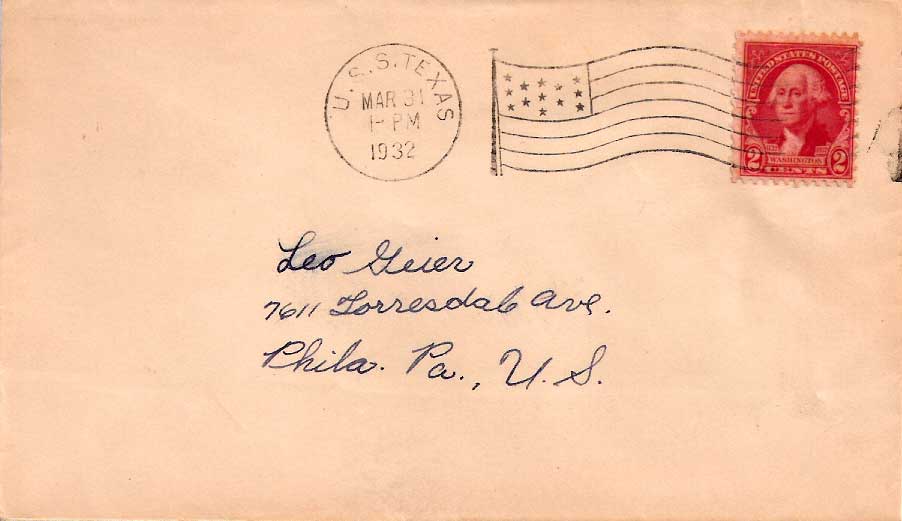 U.S.S. TEXAS
MAR 31
1- PM
1932
UNITED STATES POSTAGE
WASHINGTON
2 CENTS 2
Leo Geier
7611 Torresdale Ave.
Phila. Pa., U.S.